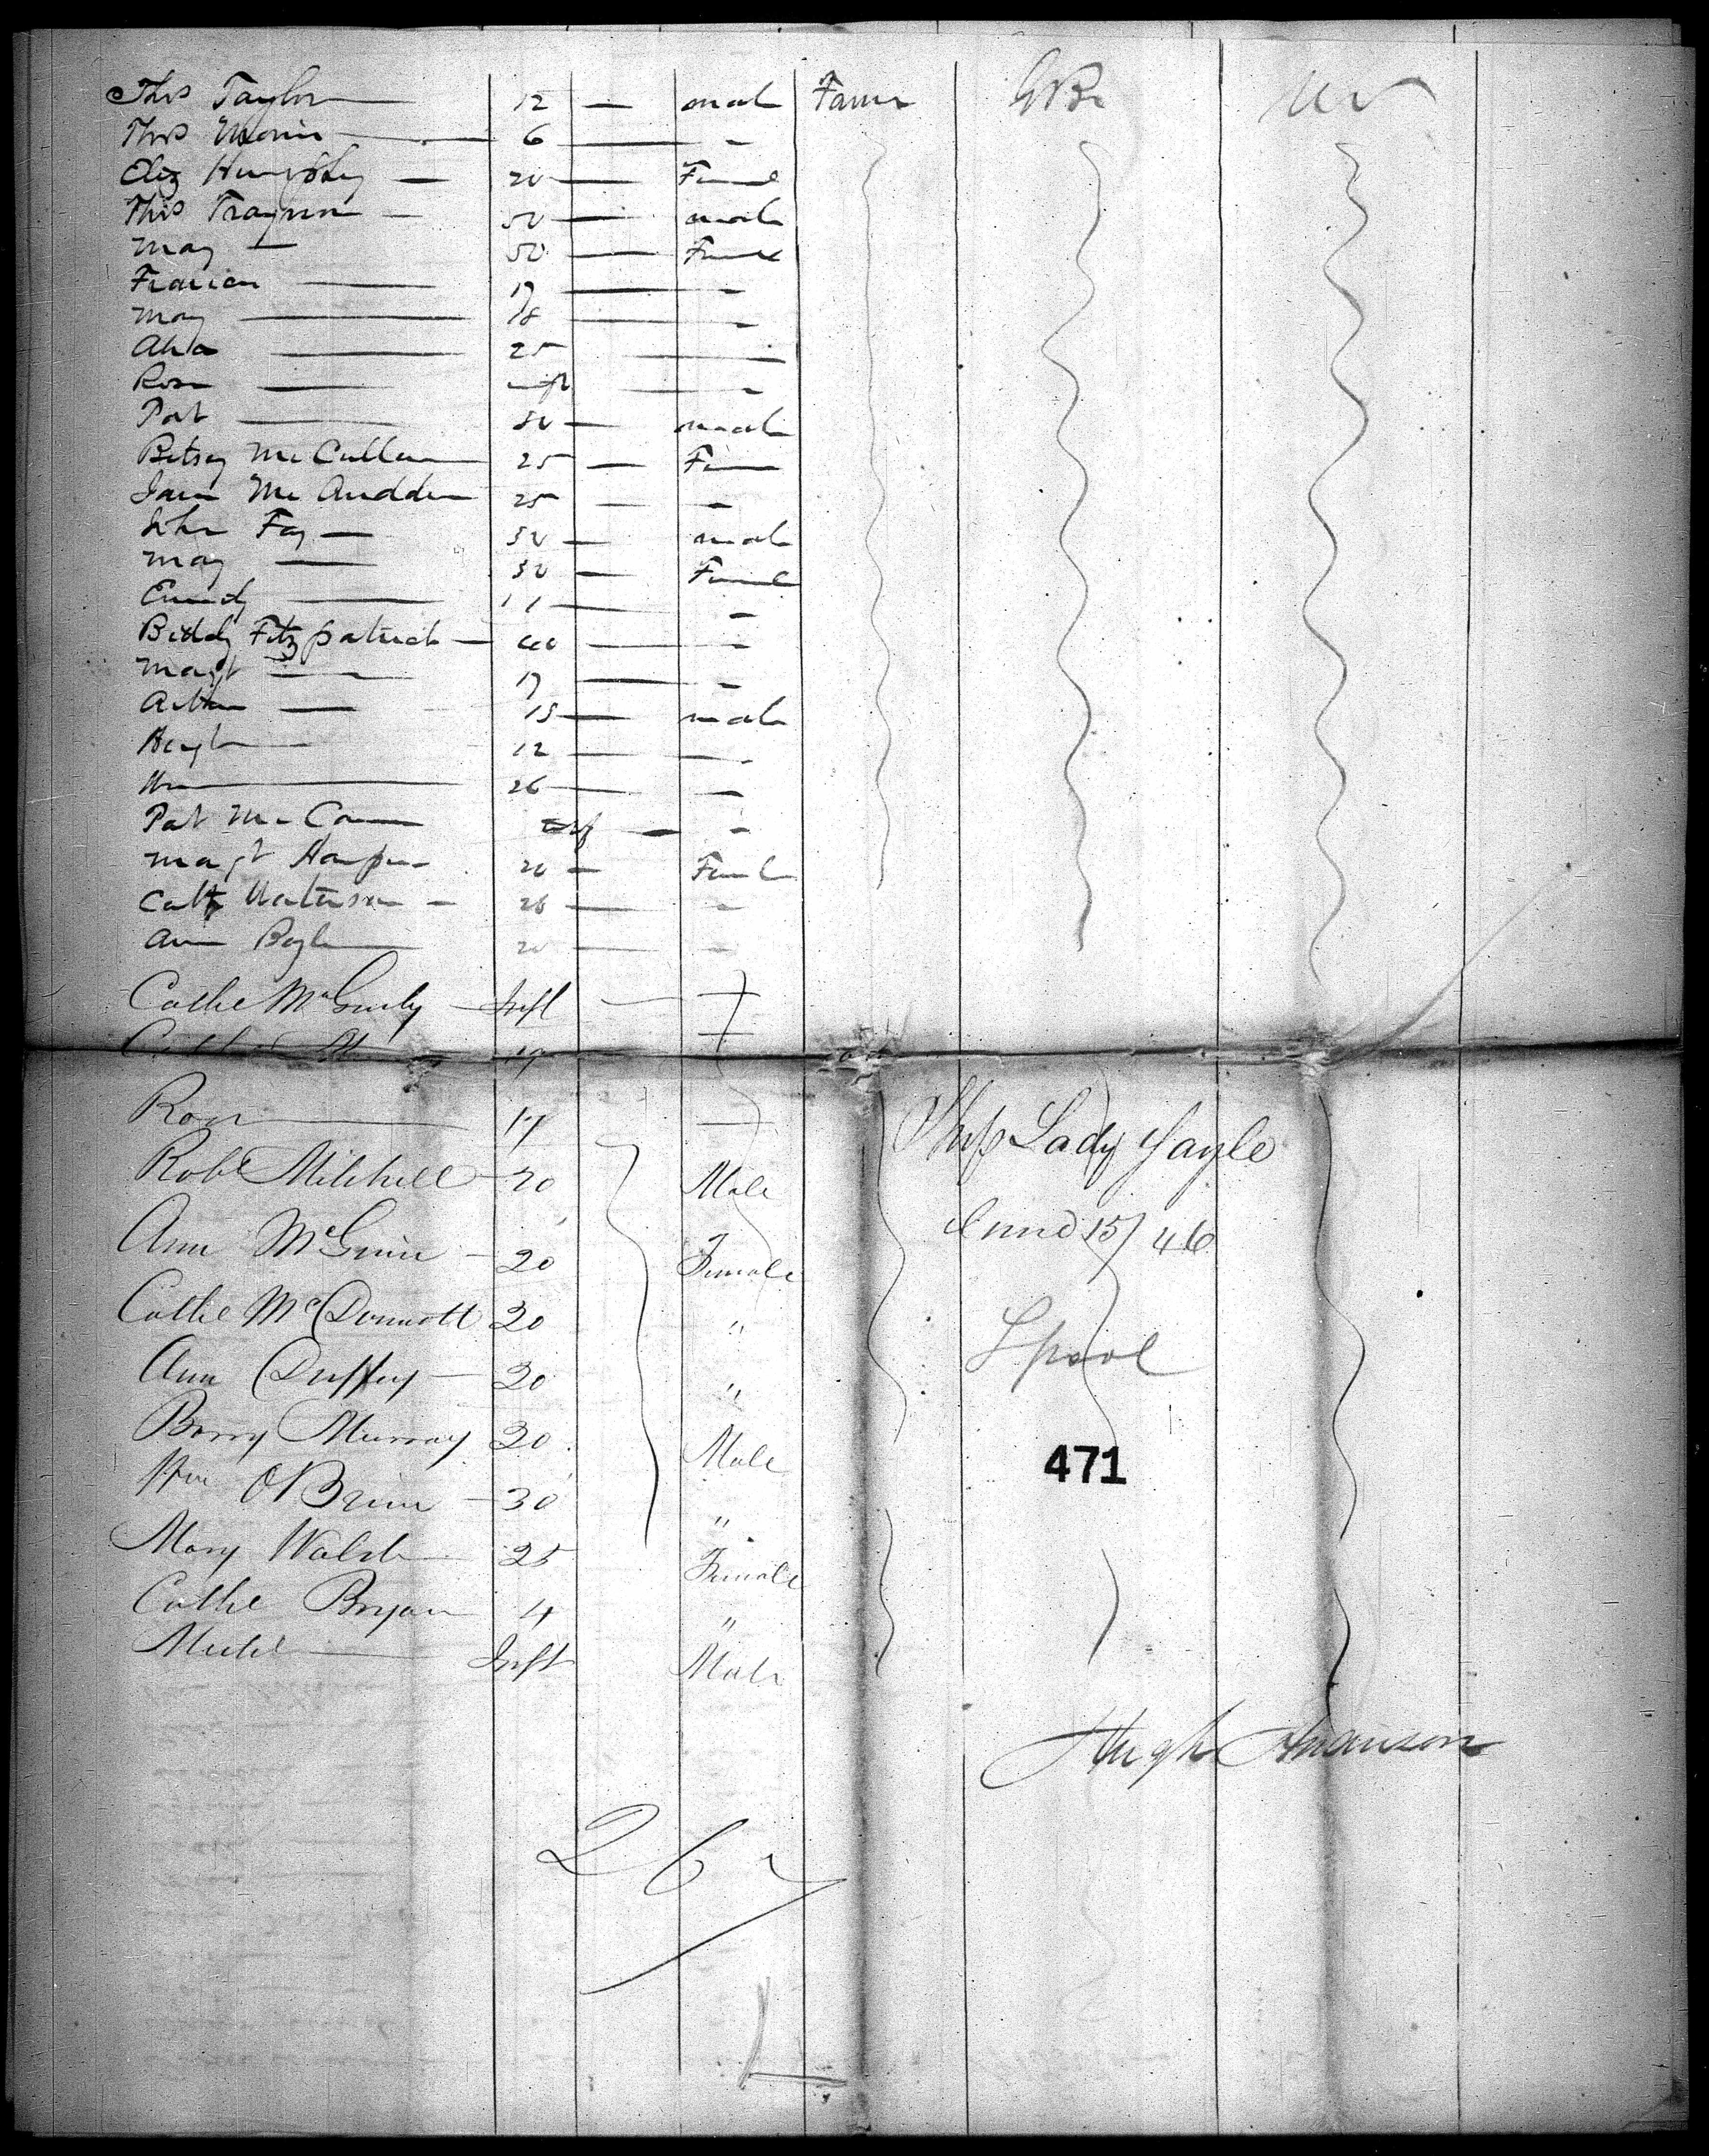 Thos Taylor — 12 — male Farmer GBr US
Thos Morris — 6 — -
Eliz Humphry — 20 — Female
Thos Traynor — 50 — male
Mary — 50 — Female
Francis — 17 — -
Mary — 18 — -
— 25 —
Rose — inft — -
Pat — 50 — male
Betsey McCullen 25 — Fem
Jane McAndden 25 — -
John Fay — 50 — male
Mary — 50 — Female
— 11 — -
Biddy Fitzpatrick — 40 — -
Magt — 17 — -
Arthur — 15 — male
Hugh — 12 — -
Wm — 26 — -
Pat McCann — -
Magt Harper 20 — Female
Cath Waterson — 26 — -
Ann Boyle 20 — -
Cathe McGurly — Inft —
19
Rose — 17 —
Ship Lady Gayle
Robt Mitchell 20 Male
June 15/46
Ann McGuire — 20 Female
Cathe McDermott 20 "
Lpool
Ann Duffey — 20 "
Barry Murray 20 Male
471
Wm O'Brien — 30 "
Mary Walsh 25 Female
Cathe Bryan 4 "
Michl — Inft Male
Hugh
267